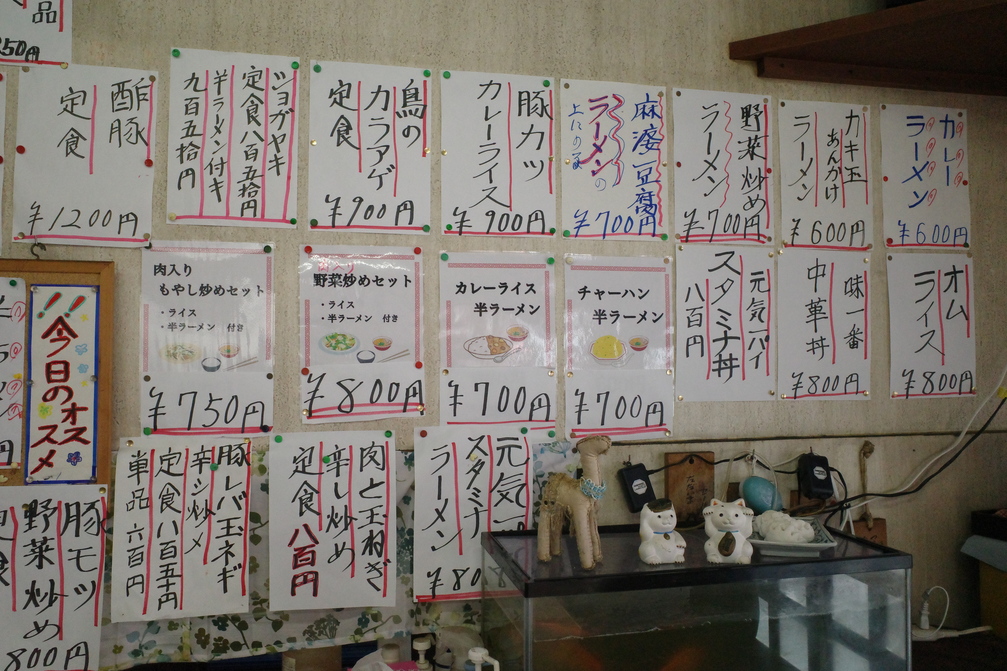 品
250円
酢豚
定食
¥1200円
ショガヤキ
定食八百五拾円
半ラーメン付キ
九百五拾円
鳥の
カラアゲ
定食
¥900円
豚カツ
カレーライス
¥900円
麻婆豆腐
ラーメンの
上にのる
¥700円
野菜炒め
ラーメン
¥700円
カキ玉
あんかけ
ラーメン
¥600円
カレー
ラーメン
¥600円
肉入り
もやし炒めセット
・ライス
・半ラーメン 付き
¥750円
肉入り
野菜炒めセット
・ライス
・半ラーメン 付き
¥800円
カレーライス
半ラーメン
¥700円
チャーハン
半ラーメン
¥700円
元気一パイ
スタミナ丼
八百円
味一番
中華丼
¥800円
オム
ライス
¥800円
!!今日のオススメ
豚モツ
野菜炒め
800円
豚レバ玉ネギ
辛シ炒メ
定食八百五十円
単品 六百円
肉と玉ねぎ
辛し炒め
定食八百円
元気
スタミナ
ラーメン
¥80